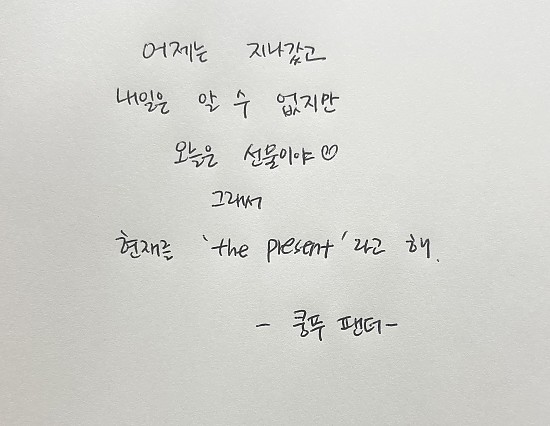 어제는 지나갔고
내일은 알 수 없지만
오늘은 선물이야♡
그래서
현재를 'the present'라고 해.
- 쿵푸 팬더-